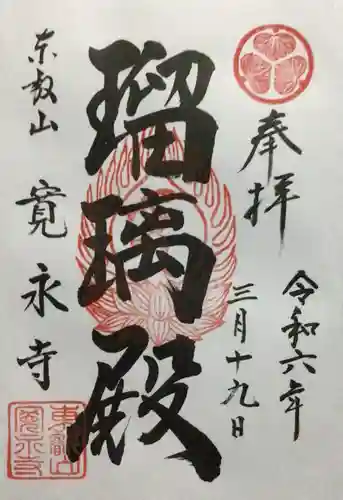 奉拝
令和六年
三月十九日
瑠璃殿
東叡山
寛永寺
東叡山
寛永寺